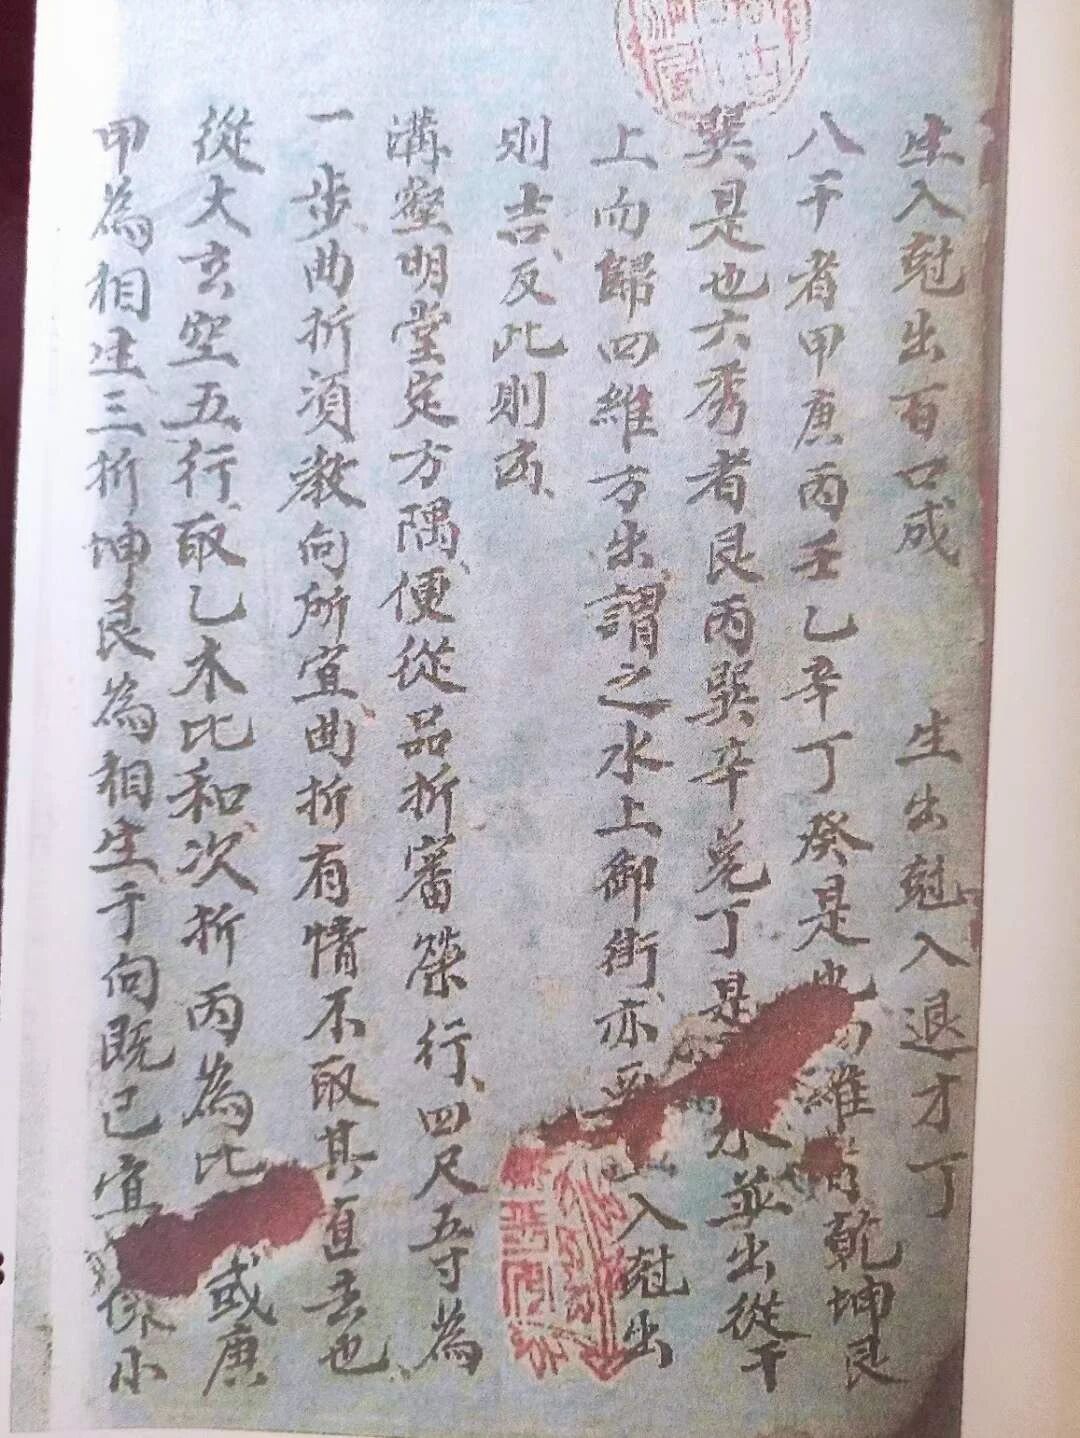 生入尅出百口成　生出尅入退才丁
八干者甲庚丙壬乙辛丁癸是也四維者乾坤艮
巽是也六秀者艮丙巽辛兌丁是水並出從干
上而歸四維方出謂之水上御街亦入尅出
則吉反此則凶
溝壑明堂定方隅便從品折審築行四尺五寸為
一步曲折須教向所宜曲折有情不取其直去也
從大玄空五行取乙木比和次折丙為比或庚
甲為相生三折坤艮為相生于向既已宜係小